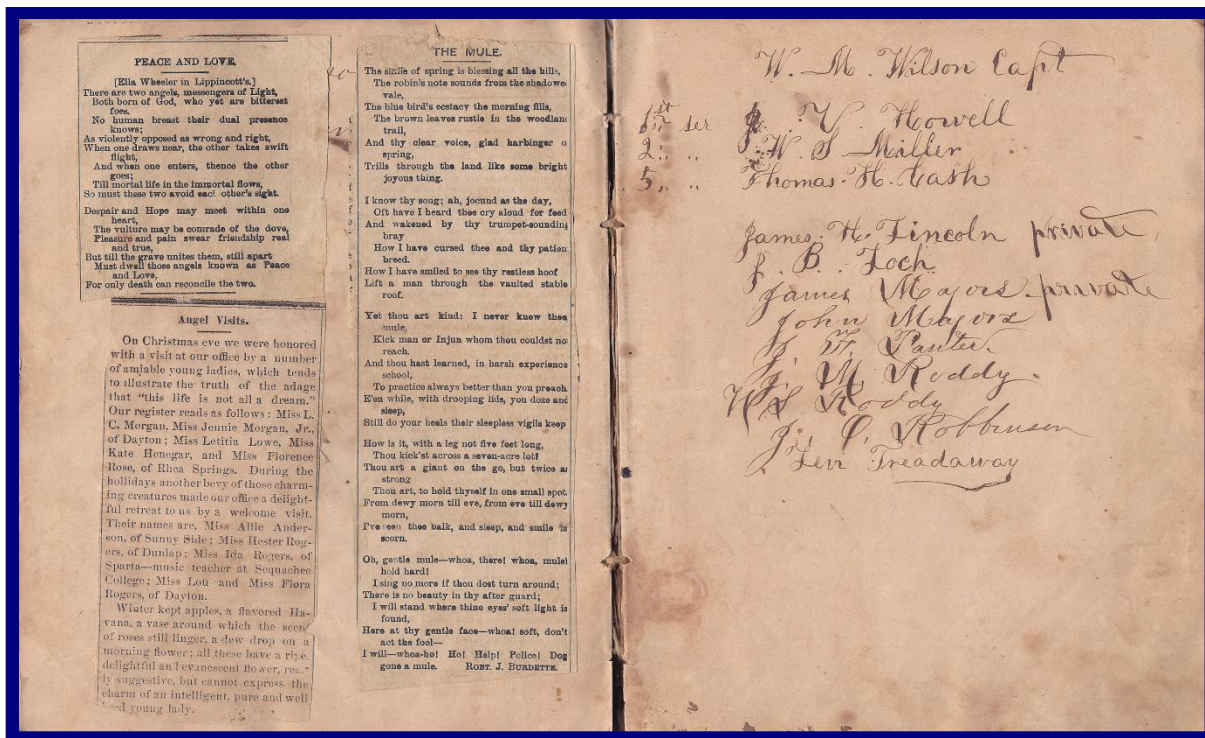 PEACE AND LOVE.
[Ella Wheeler in Lippincott's.]
There are two angels, messengers of Light,
Both born of God, who yet are bitterest
foes.
No human breast their dual presence
knows;
As violently opposed as wrong and right,
When one draws near, the other takes swift
flight,
And when one enters, thence the other
goes;
Till mortal life in the immortal flows,
So must these two avoid each other's sight.
Despair and Hope may meet within one
heart,
The vulture may be comrade of the dove,
Pleasure and pain swear friendship real
and true,
But till the grave unites them, still apart
Must dwell those angels known as Peace
and Love,
For only death can reconcile the two.
Angel Visits.
On Christmas eve we were honored
with a visit at our office by a number
of amiable young ladies, which tends
to illustrate the truth of the adage
that "this life is not all a dream."
Our register reads as follows: Miss L.
C. Morgan, Miss Jennie Morgan, Jr.,
of Dayton; Miss Letitia Lowe, Miss
Kate Henegar, and Miss Florence
Rose, of Rhea Springs. During the
hollidays another bevy of those charm-
ing creatures made our office a delight-
ful retreat to us by a welcome visit.
Their names are, Miss Allie Ander-
son, of Sunny Side; Miss Hester Rog-
ers, of Dunlap; Miss Ida Rogers, of
Sparta—music teacher at Sequachee
College; Miss Lou and Miss Flora
Rogers, of Dayton.
Winter kept apples, a flavored Ha-
vana, a vase around which the scen
of roses still linger, a dew drop on a
morning flower; all these have a ripe,
delightful and evanescent flower, rea
ly suggestive, but cannot express the
charm of an intelligent, pure and well
bred young lady.
THE MULE.
The smile of spring is blessing all the hills,
The robin's note sounds from the shadowe
vale,
The blue bird's ecstacy the morning fills,
The brown leaves rustle in the woodland
trail,
And thy clear voice, glad harbinger o
spring,
Trills through the land like some bright
joyous thing.
I know thy song; ah, jocund as the day,
Oft have I heard thee cry aloud for feed
And wakened by thy trumpet-sounding
bray
How I have cursed thee and thy patien
breed.
How I have smiled to see thy restless hoof
Lift a man through the vaulted stable
roof.
Yet thou art kind; I never knew thee,
mule,
Kick man or Injun whom thou couldst no
reach.
And thou hast learned, in harsh experience
school,
To practice always better than you preach
E'en while, with drooping lids, you doze and
sleep,
Still do your heels their sleepless vigils keep
How is it, with a leg not five feet long,
Thou kick'st across a seven-acre lot!
Thou art a giant on the go, but twice as
strong
Thou art, to hold thyself in one small spot
From dewy morn till eve, from eve till dewy
morn,
I've seen thee balk, and sleep, and smile in
scorn.
Oh, gentle mule—whoa, there! whoa, mule!
hold hard!
I sing no more if thou dost turn around;
There is no beauty in thy after guard;
I will stand where thine eyes' soft light is
found,
Here at thy gentle face—whoa! soft, don't
act the fool—
I will—whoa-ho! Ho! Help! Police! Dog
gone a mule. ROBT. J. BURDETTE.
W. M. Wilson Capt
1st ser J. V. Howell
2. " " W. S. Miller
5. " " Thomas H. Cash
James H. Lincoln private
J. B. Loch.
James Majors private
John Majors
J. F. Panter.
J. M. Roddy.
W S Roddy
J. C. Robbinson
Levi Treadaway